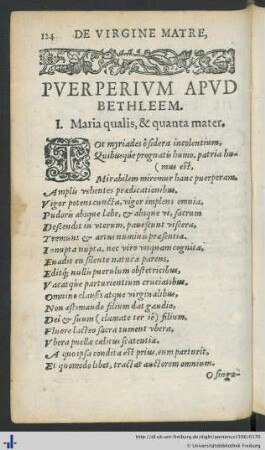 124 DE VIRGINE MATRE,
PVERPERIVM APVD
BETHLEEM.
I. Maria qualis, & quanta mater.
TOt myriades ô sidera incolentium,
Quibusque prognatis humo, patria hu-
(mus est,
Mirabilem miremur hanc puerperam,
Amplis vehentes prædicationibus.
Vigor potens cuncta, vigor implens omnia,
Pudoris absque labe, & absque vi, sacrum
Descendit in vterum, pauescunt viscera,
Tremunt & artus numinis præsentia.
Innupta nupta, nec viro vnquam cognita,
Euadit en silente natura parens,
Editq́; nullis puerulum obstetricibus,
Vacatque parturientium cruciatibus,
Omnino clausis atque virginalibus,
Non æstimando filium dat gaudio,
Dei & suum (clamate ter iô) filium.
Fluore lacteo sacra tument vbera,
Vbera puellæ cælitus scatentia.
A quo ipsa condita est prius, eum parturit,
Et quomodolibet, tractat auctorem omnium.